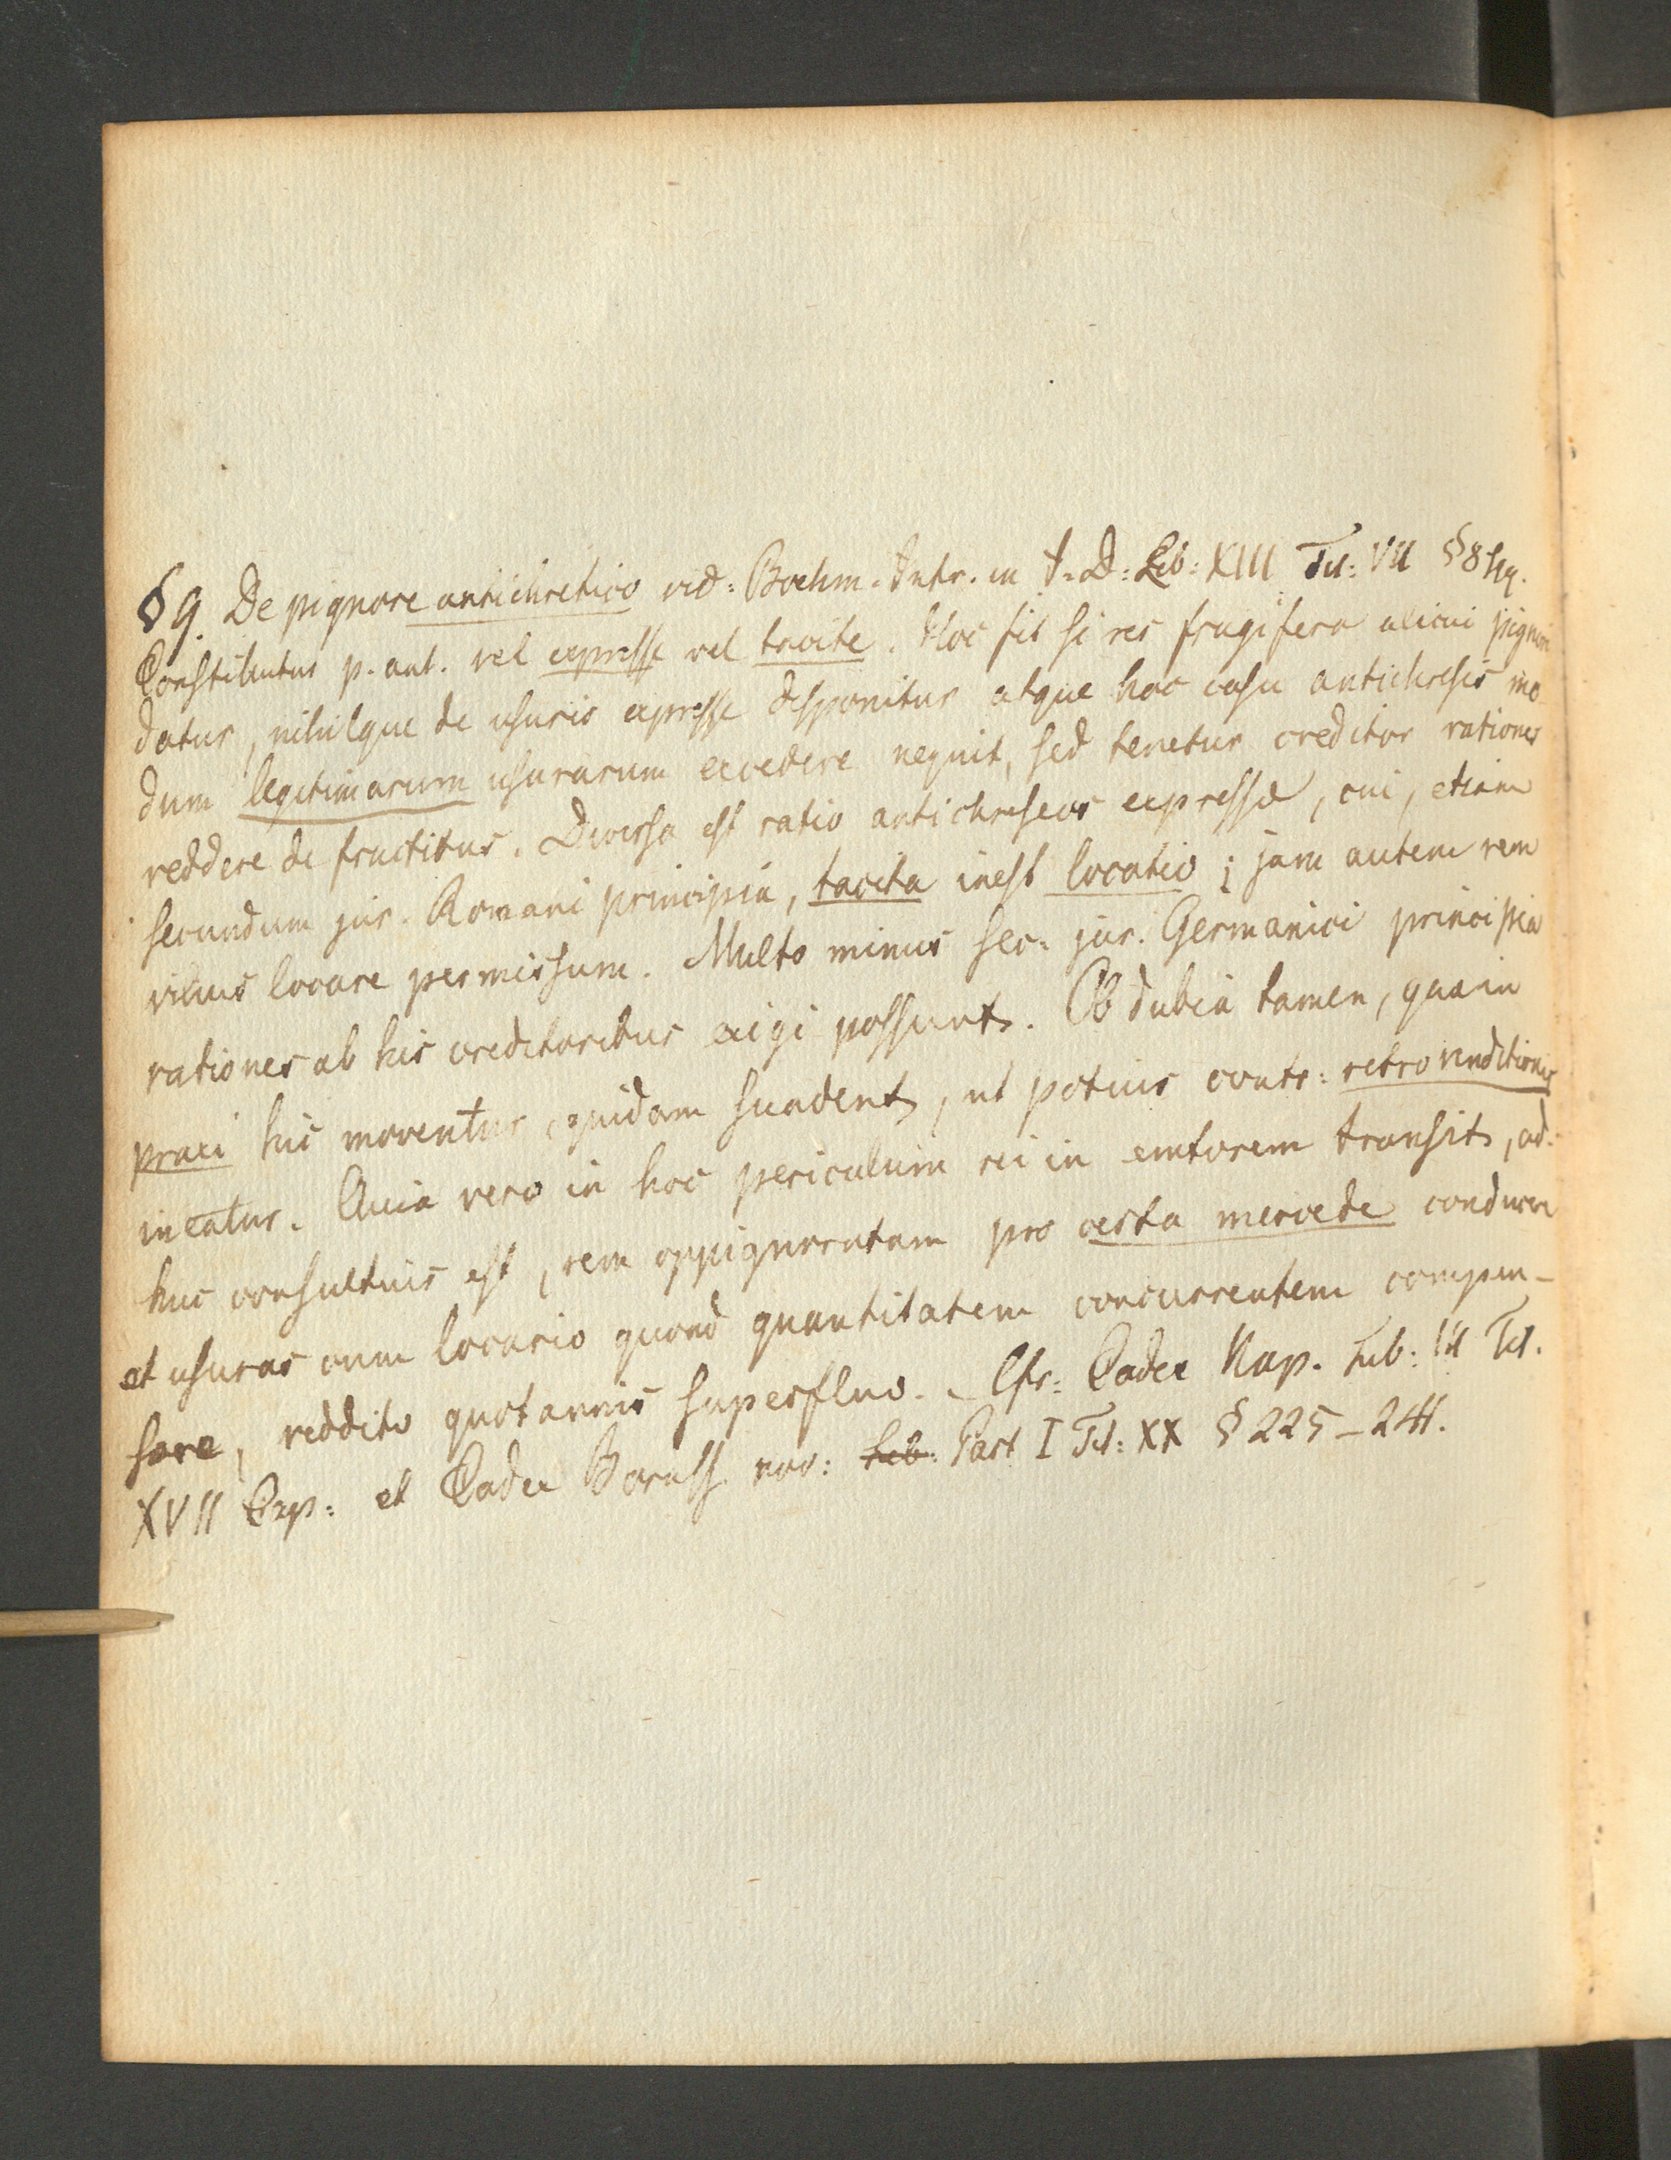 § 9. De pignore antichretico vid: Boehm. Intr. in J. D: Lib: XIII Tit: VII § 8 sq.
Constituitur p. ant. vel expresse vel tacite. Hoc fit si res frugifera alicui pignori
datur, nihilque de usuris expresse disponitur atque hoc casu antichresis mo-
dum legitimarum usurarum excedere nequit, sed tenetur creditor rationes
reddere de fructibus. Diversa est ratio antichreseos expressæ, cui, etiam
secundum jur. Romani principia, tacita inest locatio; jam autem rem
vilius locare permissum. Multo minus sec: jur. Germanici principia
rationes ab his creditoribus exigi possunt. Ob dubia tamen, quæ in
praxi hic moventur, quidam suadent, ut potius contr: retrovenditionis
ineatur. Quia vero in hoc periculum rei in emtorem transit, ad-
huc consultius est, rem oppignoratam pro certa mercede conducere
et usuras cum locario quoad quantitatem concurrentem compen-
sare, reddito quotannis superfluo. – Cfr: Codex Nap. Lib: III Tit.
XVII Cap: et Codex Boruss nov: Lib: Part I Tit: XX § 225–241.